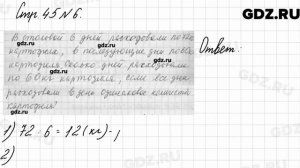 GDZ.RU
Стр 45 № 6.
В столовой 6 дней расходовали по
картофеля, в последующие дни
картофеля. Сколько дней расходовали
по 60 кг картофеля, если все дни
расходовали в день одинаковое количество
картофеля?
Ответ:
1) 72 : 6 = 12 (кг) -
2)
GDZ.RU
GDZ.RU